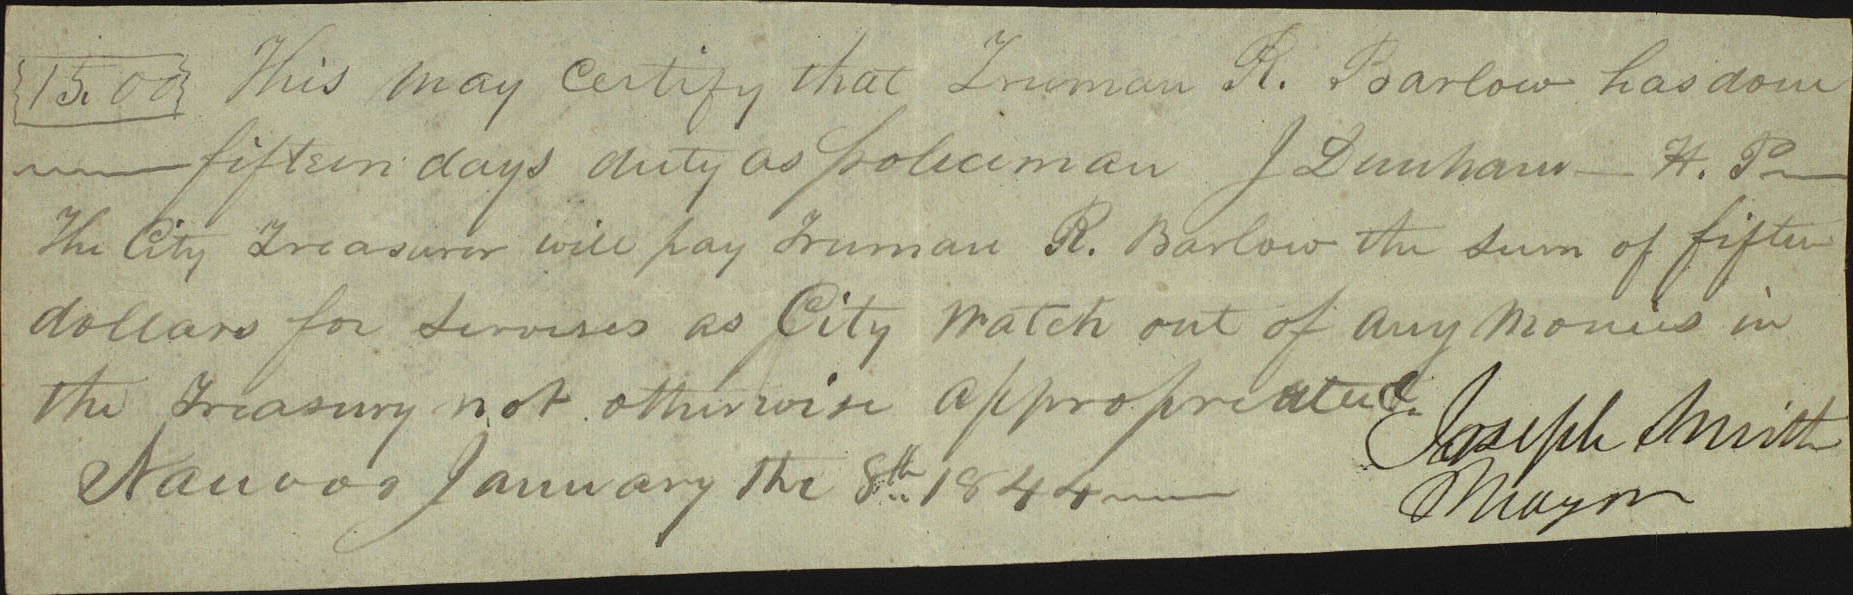 15.00 This may certify that Truman R. Barlow has done
fifteen days duty as policeman J Dunham — H. P
The City Treasurer will pay Truman R. Barlow the sum of fifteen
dollars for servises as City Watch out of any Monies in
the Treasury not otherwise appropreated.
Joseph Smith
Nauvoo January the 8th 1844
Mayor